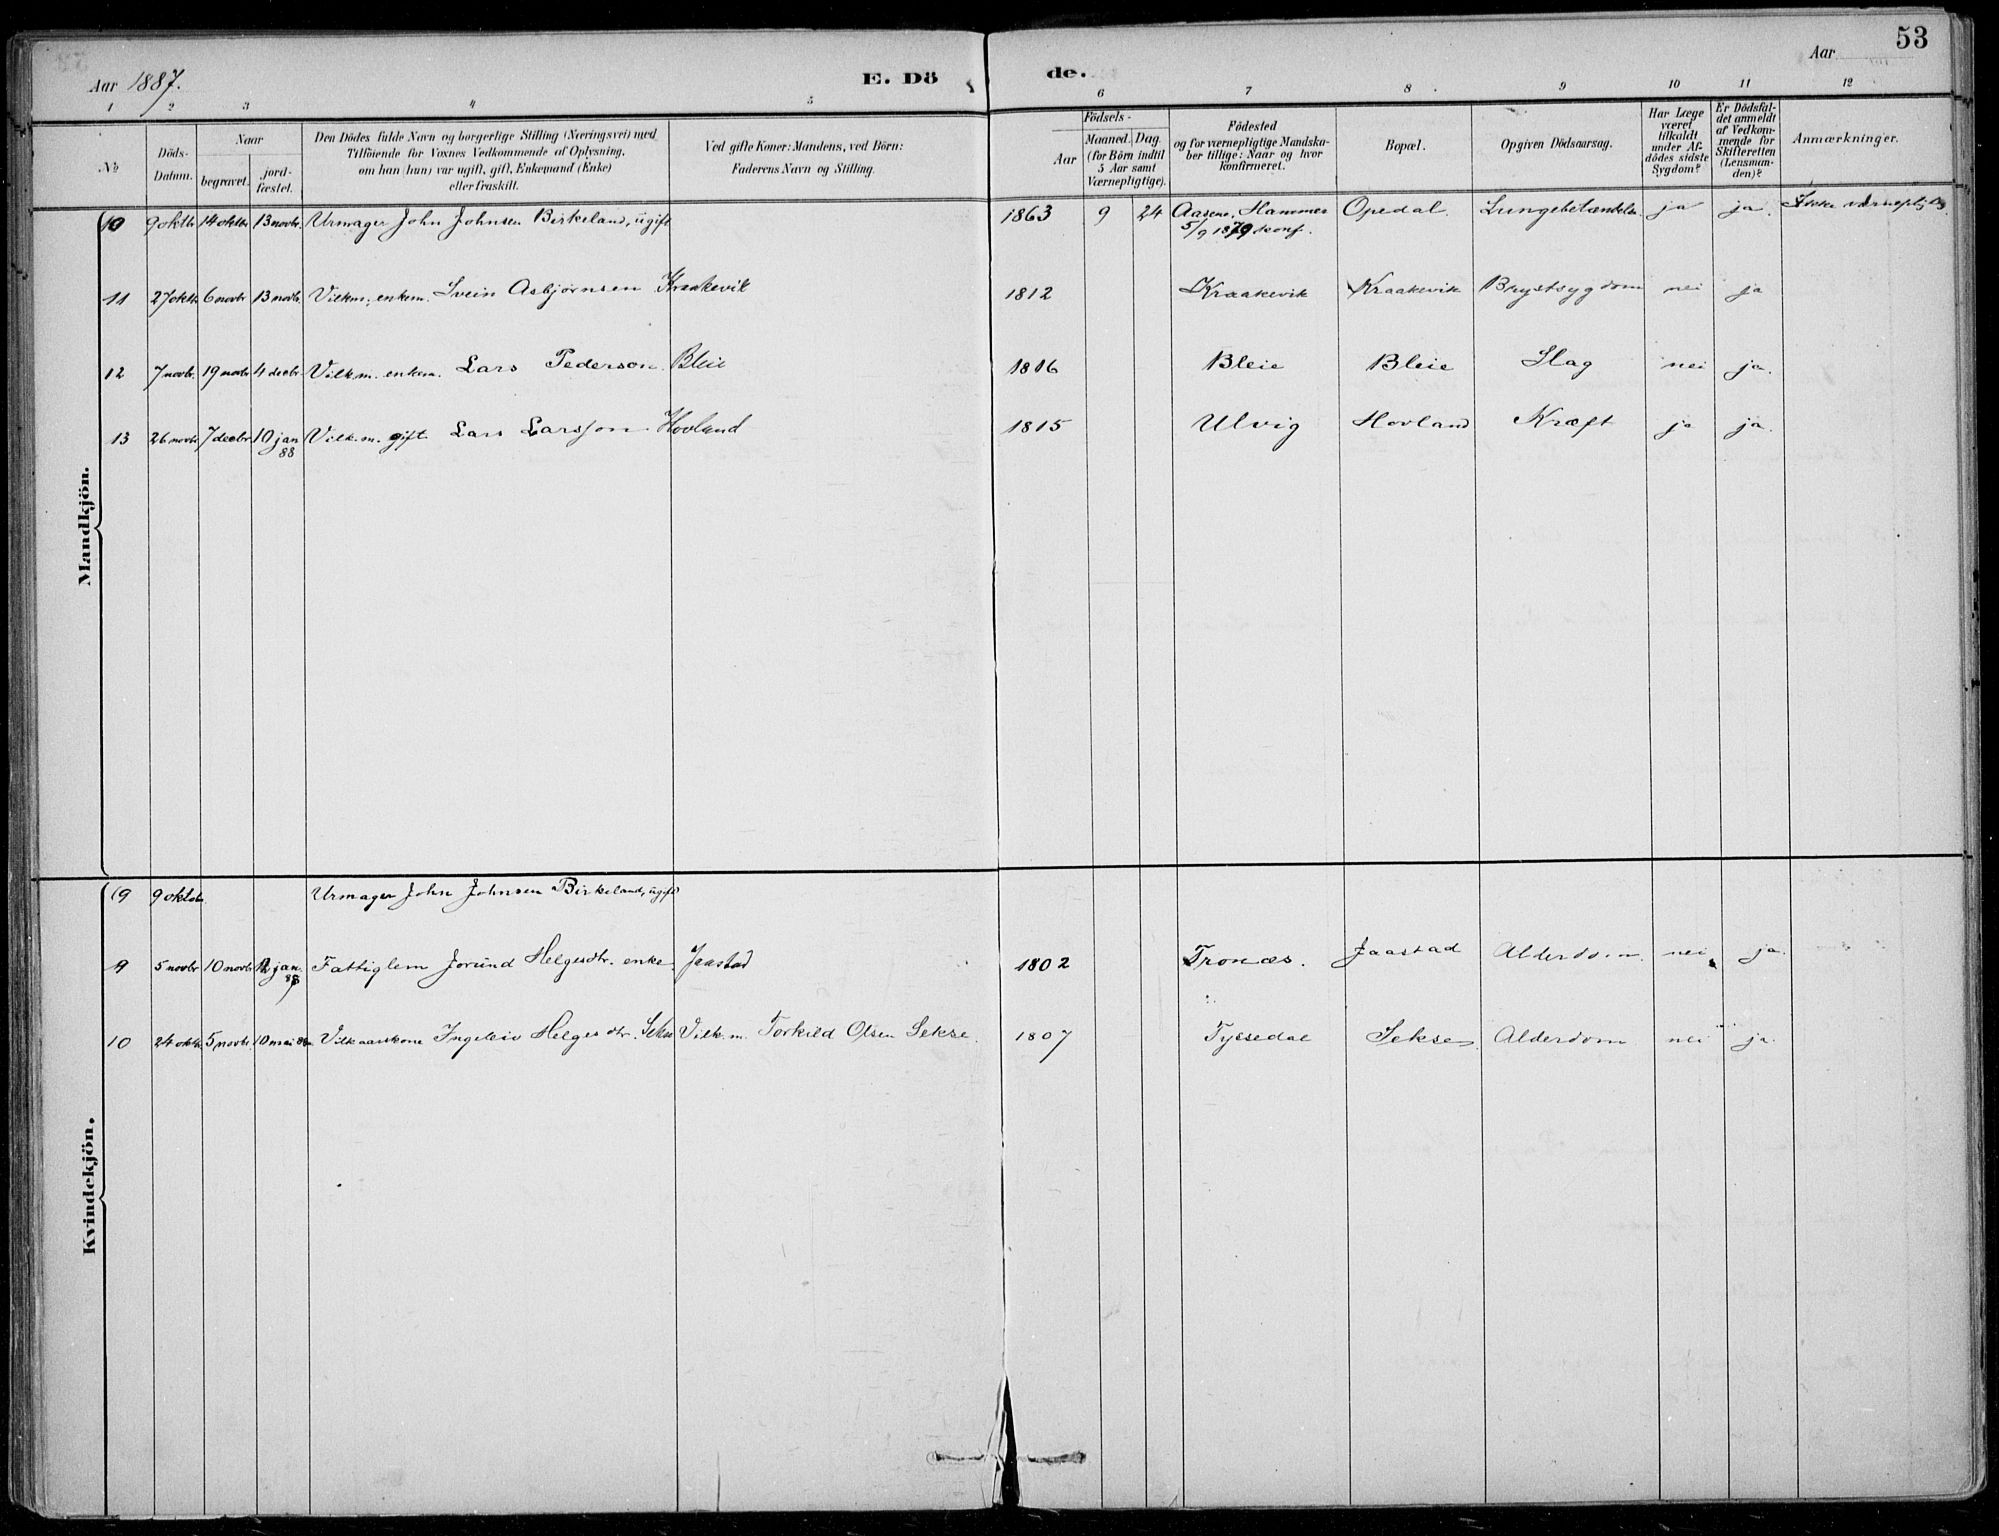 53
Aar 1887.
E. Dö
de.
Aar
1 2 3 4 5 6 7 8 9 10 11 12
No
Döds-
Datum.
Naar
begravet.
jord-
fæstet.
Den Dödes fulde Navn og borgerlige Stilling (Næringsvei) med
Tilföiende for Voxnes Vedkommende af Oplysning,
om han (hun) var ugift, gift, Enkemand (Enke)
eller fraskilt.
Ved gifte Koner: Mandens, ved Börn:
Faderens Navn og Stilling.
Födsels-
Aar
Maaned. Dag.
(for Börn indtil
5 Aar samt
Værnepligtige).
Födested
og for værnepligtige Mandska-
ber tillige: Naar og hvor
konfirmeret.
Bopæl.
Opgiven Dödsaarsag.
Har Læge
været
tilkaldt
under Af-
dödes sidste
Sygdom?
Er Dödsfal-
det anmeldt
af Vedkom-
mende for
Skifteretten
(Lensman-
den)?
Anmærkninger.
Mandkjön.
10 9 oktbr 14 oktbr 13 novbr. Urmager John Johnsen Birkeland, ugift 1863 9 24 Aasene, Hammer Opedal. Lungebetændelse ja ja. Ikke værnepligtig.
5/9 1879 konf.
11 27 oktbr 6 novbr 13 novbr. Vilkm. enkem. Svein Asbjørnsen Kraakevik 1812 Kraakevik Kraakevik Brystsygdom nei ja
12 7 novbr. 19 novbr 4 decbr Vilk.m. enkem. Lars Pederson Bleie 1816 Bleie Bleie Slag nei ja.
13 26 novbr 7 decbr 10 jan Vilk.m. gift Lars Larsson Hovland 1815 Ulvig Hovland Kræft ja ja.
88
Kvindekjön.
19 9 oktobr Urmager John Johnsen Birkeland, ugift
9 5 novbr 10 novbr 12 jan. Fattiglem Jorund Helgesdtr. enke Jaastad 1802 Tronæs. Jaastad Alderdom nei ja.
88
10 24 oktbr 5 novbr. 10 mai 88 Vilkaarskone Ingeleiv Helgesdtr. Sekse Vilk.m. Torkild Olsen Sekse. 1807 Tyssedal Sekse. Alderdom nei ja.